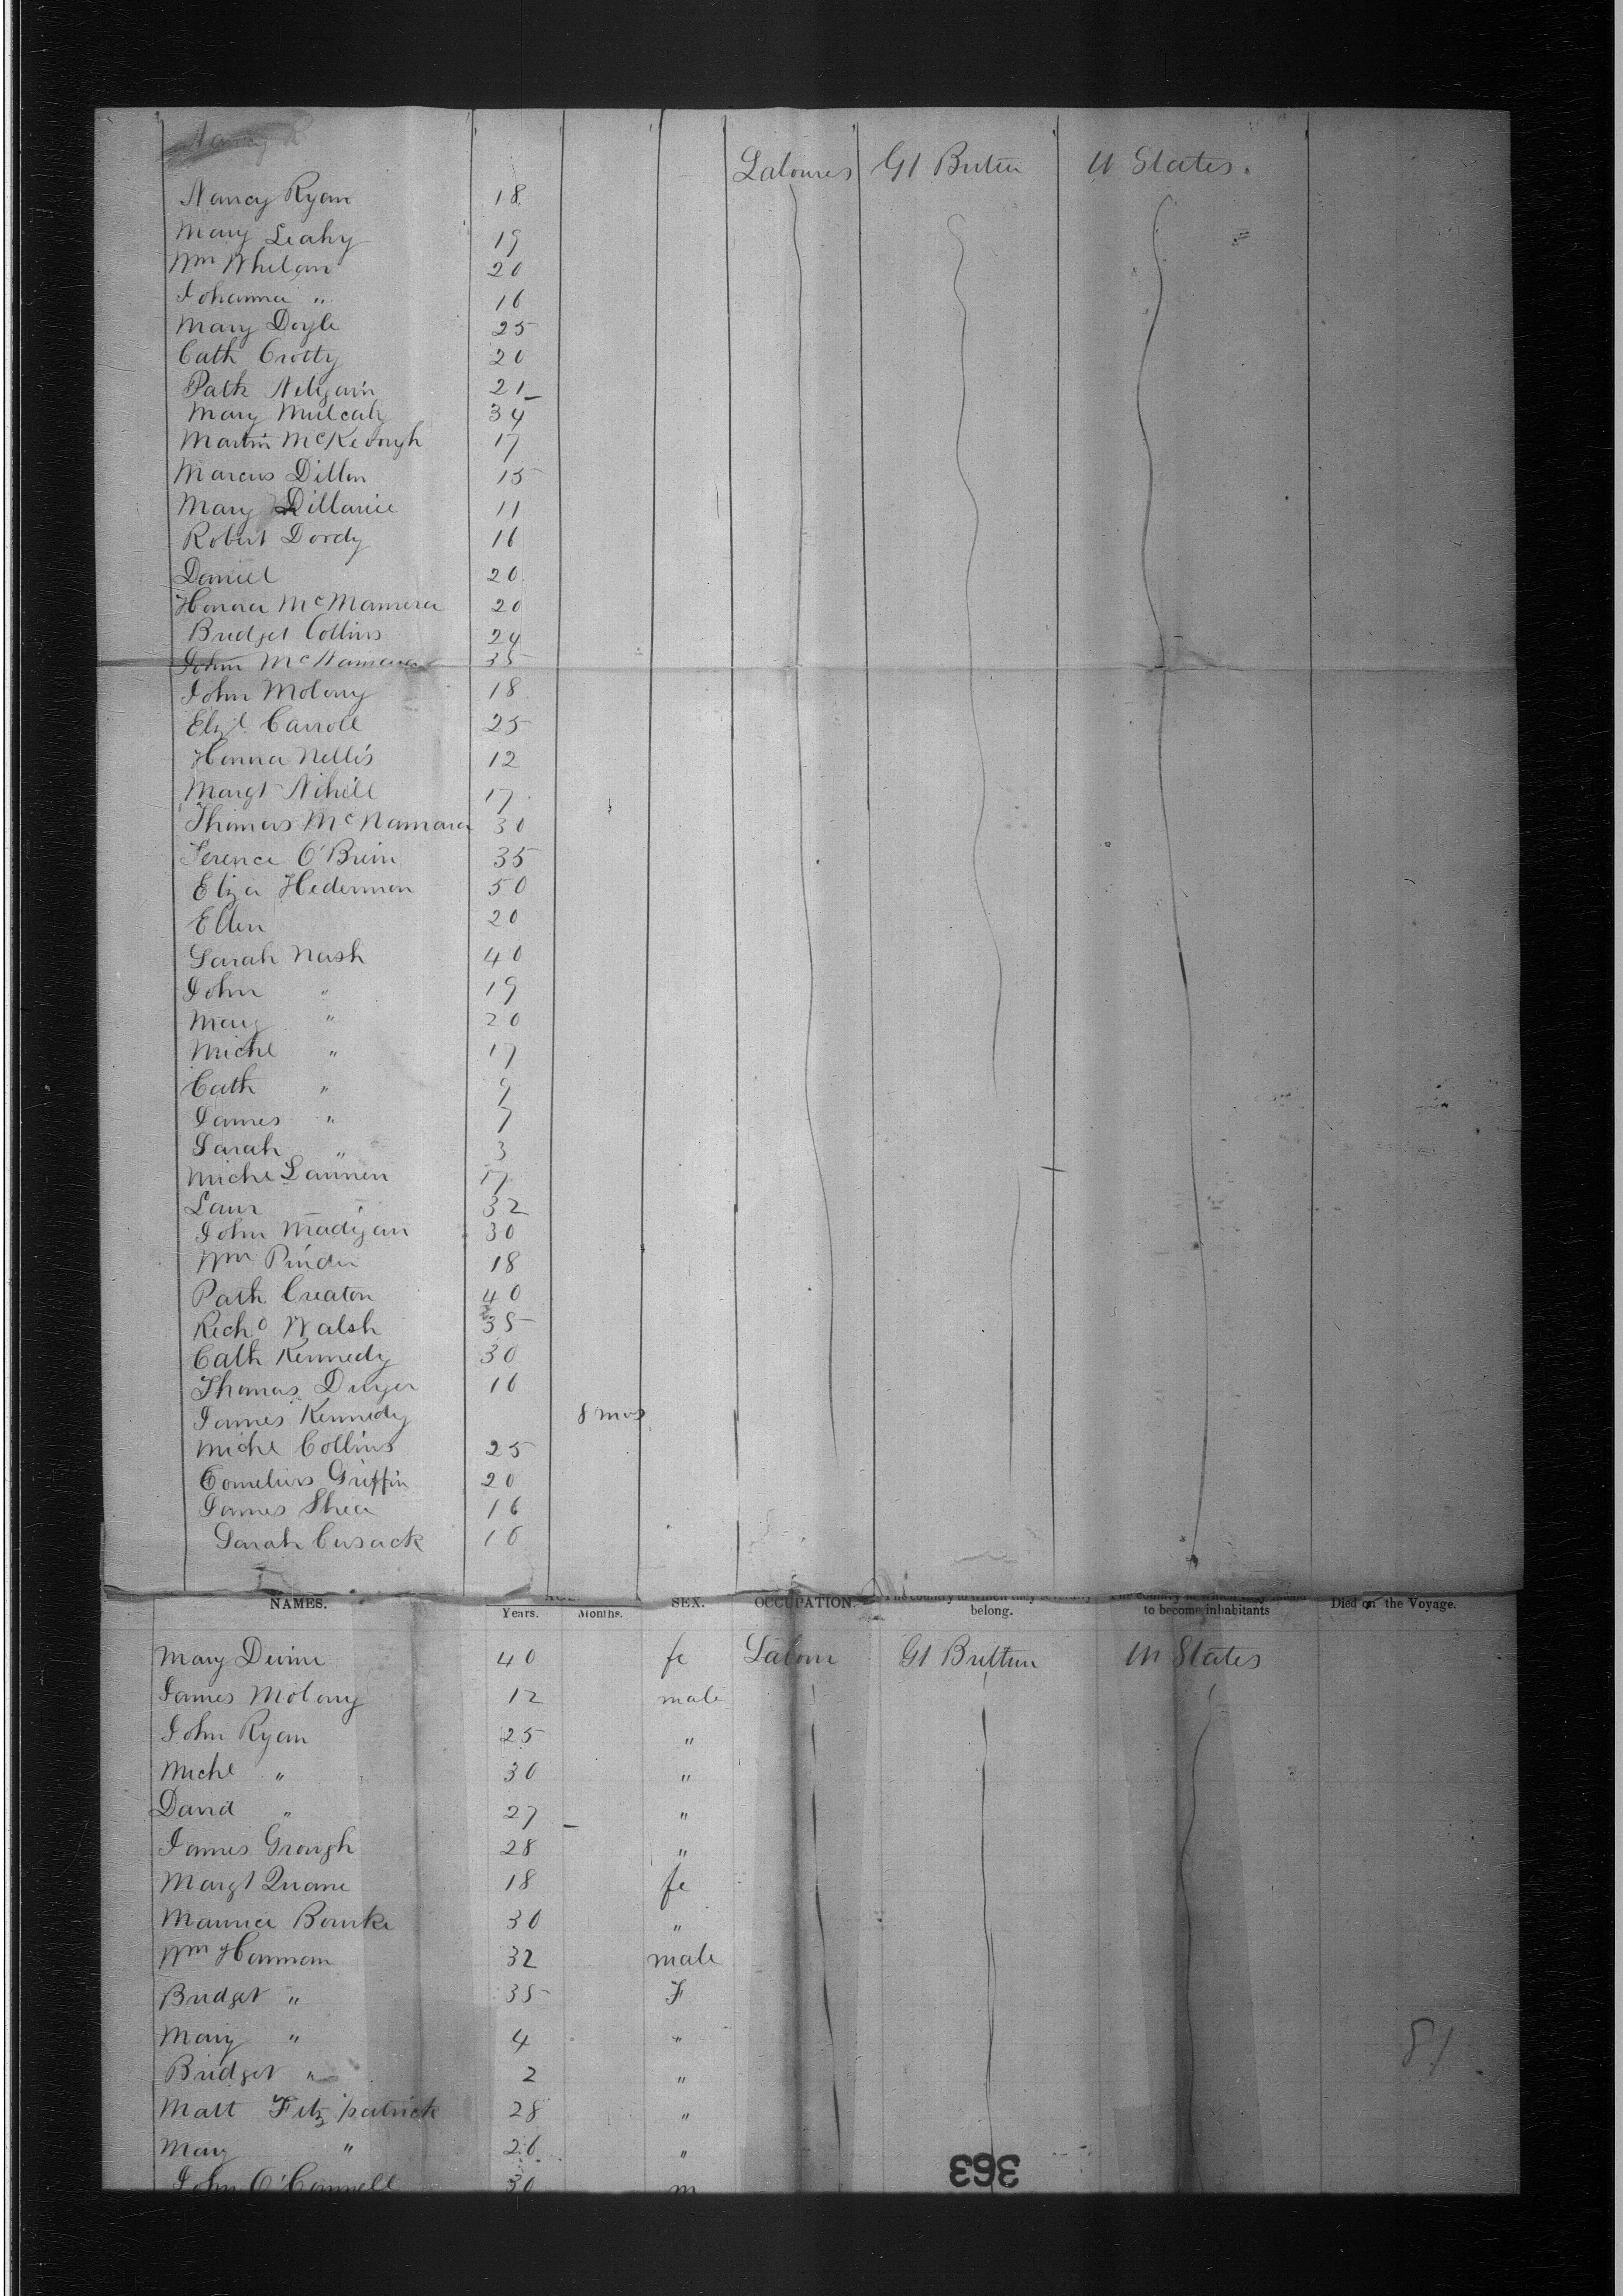 Labourers Gt Britain U States.
Nancy Ryan 18
Mary Leahy 19
Wm Whelan 20
Johanna " 16
Mary Doyle 25
Cath Crotty 20
Patk 21
Mary Mulcahy 34
Martin McKeough 17
Marcus Dillon 15
Mary 11
Robert Dordy 16
Daniel 20
Honora McMamara 20
Bridget Collins 24
John McNamara 35
John Molony 18
Elizt Carroll 25
Honora Nellis 12
Margt Nihill 17
Thomas McNamara 30
Terence O'Brien 35
Eliza Hedermon 50
Ellen 20
Sarah Nash 40
John " 19
Mary " 20
Michl " 17
Cath " 9
James " 7
Sarah " 3
Michl Lannen 17
Laur 32
John Madigan 30
Wm Pinder 18
Patk Creaton 40
Richd Walsh 35
Cath Kennedy 30
Thomas Dwyer 16
James Kennedy 8 mos
Michl Collins 25
Cornelius Griffin 20
James Shea 16
Sarah Cusack 16
NAMES. Years. Months. SEX. OCCUPATION. The country to which they severally belong. The country in which they intend to become inhabitants Died on the Voyage.
Mary Devine 40 fe Labour Gt Brittan Un States
James Molony 12 male
John Ryan 25 "
Michl " 30 "
David " 27 "
James Grough 28 "
Margt Quane 18 fe
Maurice Bourke 30 "
Wm Hannan 32 male
Bridget " 35 F
Mary " 4 "
Bridget " 2 "
Matt Fitzpatrick 28 "
Mary " 26 "
John O'Connell 30 m
81
363